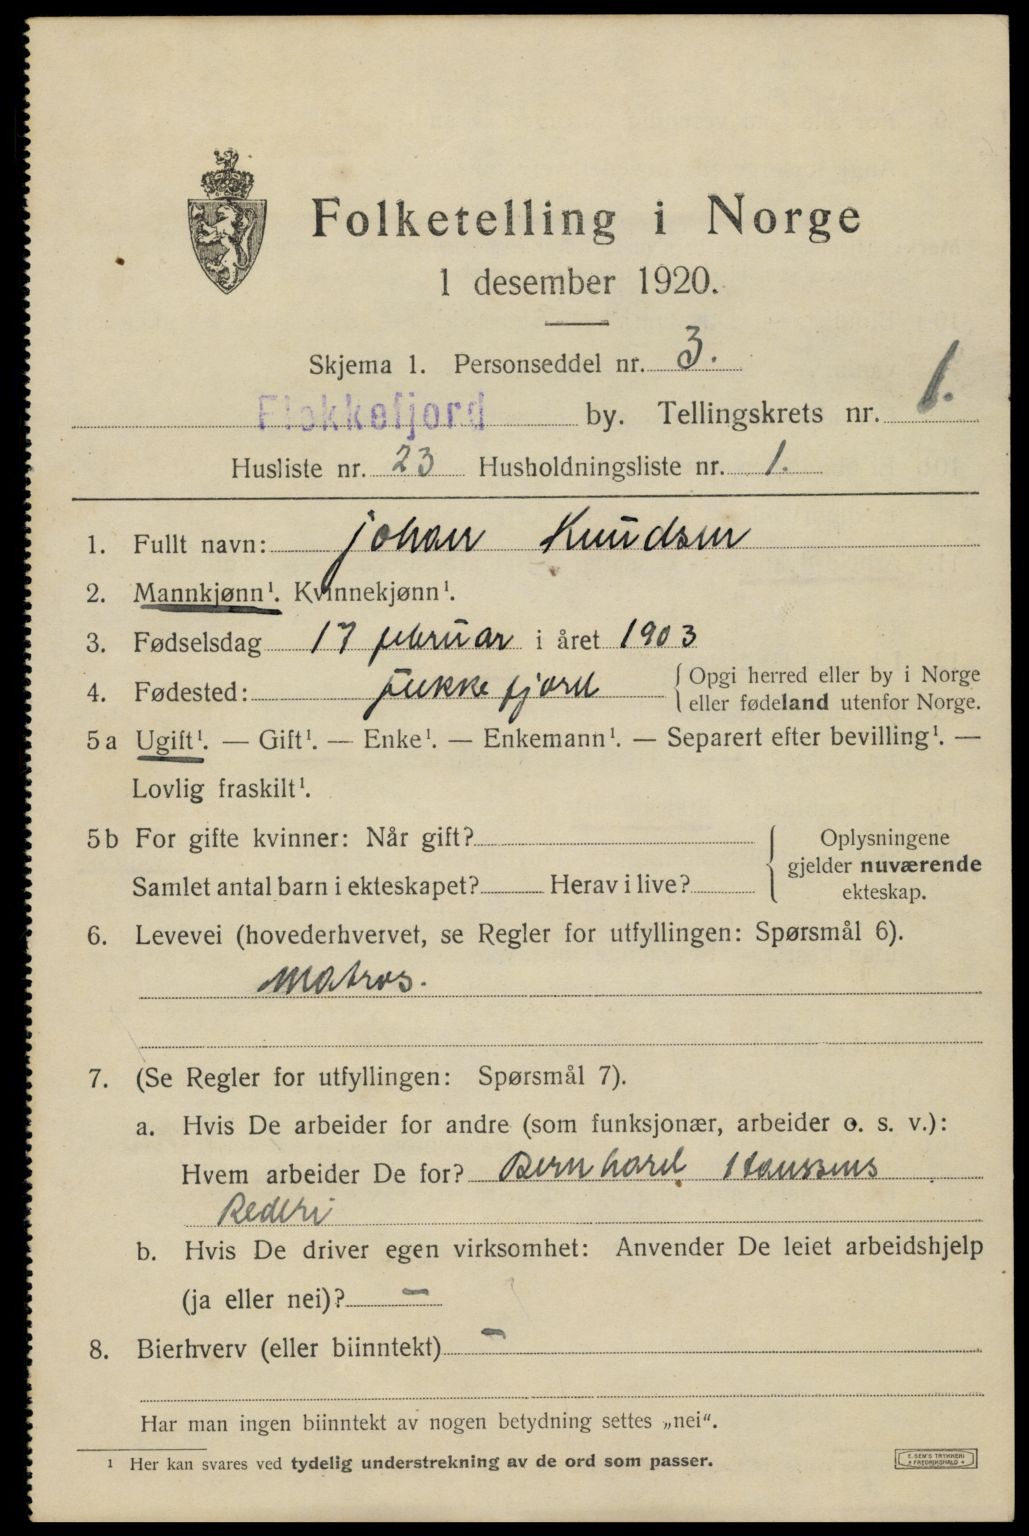 Folketelling i Norge
1 desember 1920.
Skjema 1. Personseddel nr. 3.
Flekkefjord by. Tellingskrets nr. 1.
Husliste nr. 23 Husholdningsliste nr. 1.
1. Fullt navn: Johan Knudsen
2. Mannkjønn¹. Kvinnekjønn¹.
3. Fødselsdag 17 februar i året 1903
4. Fødested: Flekkefjord { Opgi herred eller by i Norge
eller fødeland utenfor Norge.
5a Ugift¹. — Gift¹. — Enke¹. — Enkemann¹. — Separert efter bevilling¹. —
Lovlig fraskilt¹.
5b For gifte kvinner: Når gift?
Samlet antal barn i ekteskapet? Herav i live?
Oplysningene
gjelder nuværende
ekteskap.
6. Levevei (hovederhvervet, se Regler for utfyllingen: Spørsmål 6).
Matros.
7. (Se Regler for utfyllingen: Spørsmål 7).
a. Hvis De arbeider for andre (som funksjonær, arbeider o. s. v.):
Hvem arbeider De for? Bernhard Hanssens
Rederi
b. Hvis De driver egen virksomhet: Anvender De leiet arbeidshjelp
(ja eller nei)? —
8. Bierhverv (eller biinntekt) —
Har man ingen biinntekt av nogen betydning settes „nei“.
¹ Her kan svares ved tydelig understrekning av de ord som passer.
E. SEM'S TRYKKERI
FREDRIKSHALD